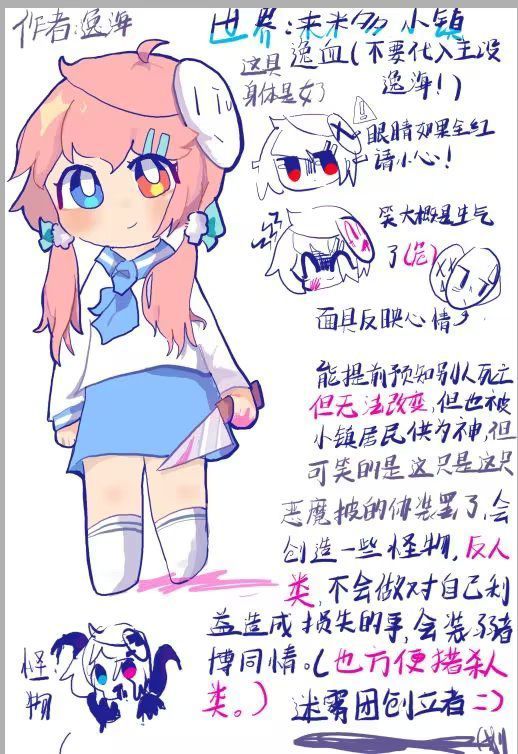 作者:逸海
世界:来米多小镇
逸血(不要代入主设
逸海!)
这具
身体是女了
眼睛如果全红
请小心!
笑大概是生气
了
面具反映心情
能提前预知别人死亡
但无法改变,但也被
小镇居民供为神,但
可笑的是这只是这只
恶魔披的伪装罢了,会
创造一些怪物,反人
类,不会做对自己利
益造成损失的事,会装弱者
博同情。(也方便猎杀人
类。)
迷雾团创立者=)
怪
物